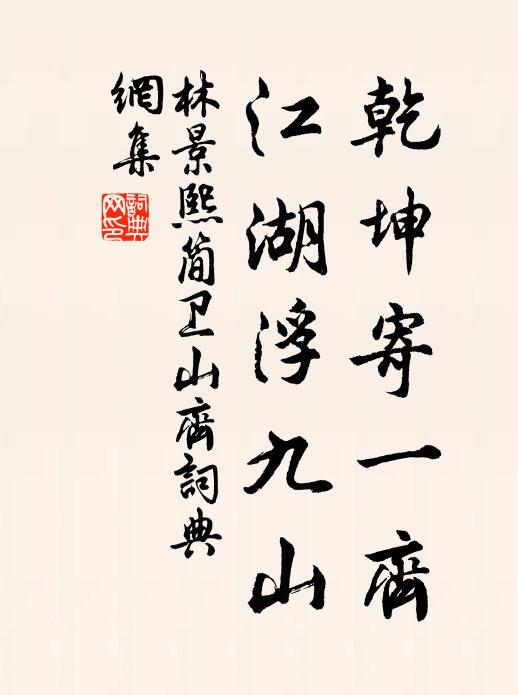 乾坤寄一齊
江湖浮九山
林景熙簡卫山齊詞典
網集
詞典
网印